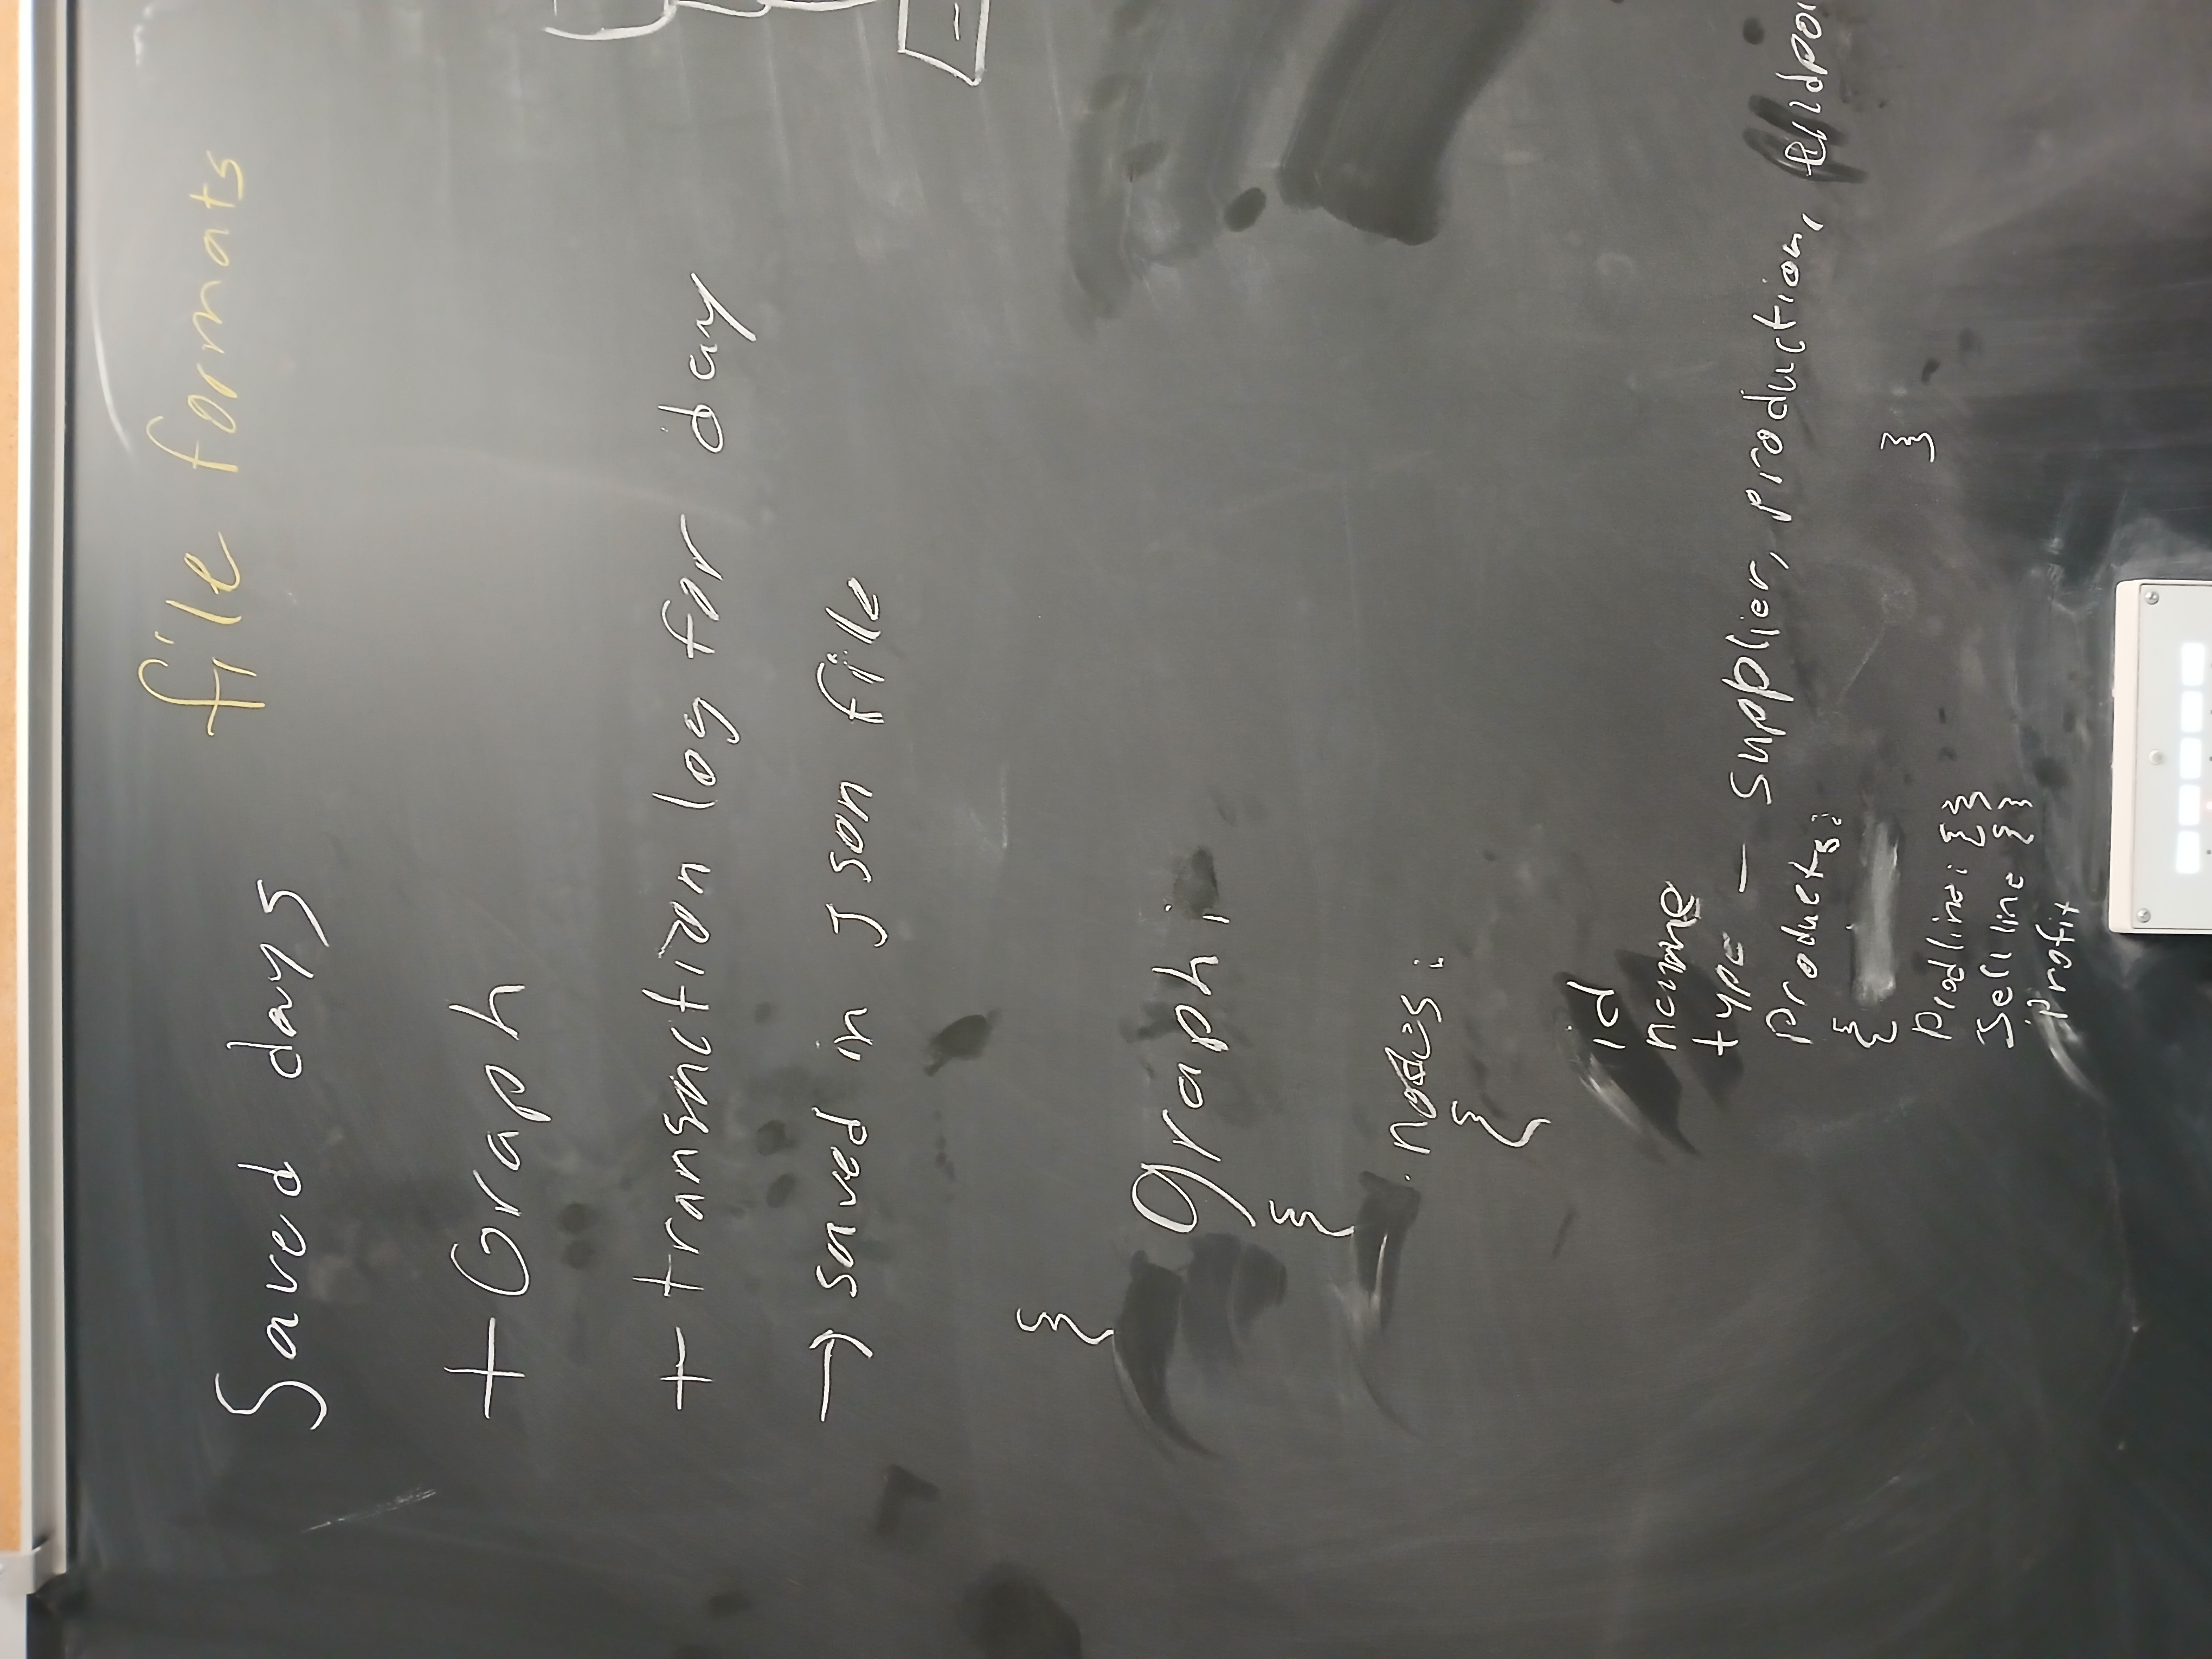 file formats
Saved days
+ Graph
+ transaction log for day
→ saved in Json file
{
graph:
{
nodes:
{
id
name
type – supplier, production, endpoi
Products:
{ }
Prodline: {}
Sell line {}
Profit